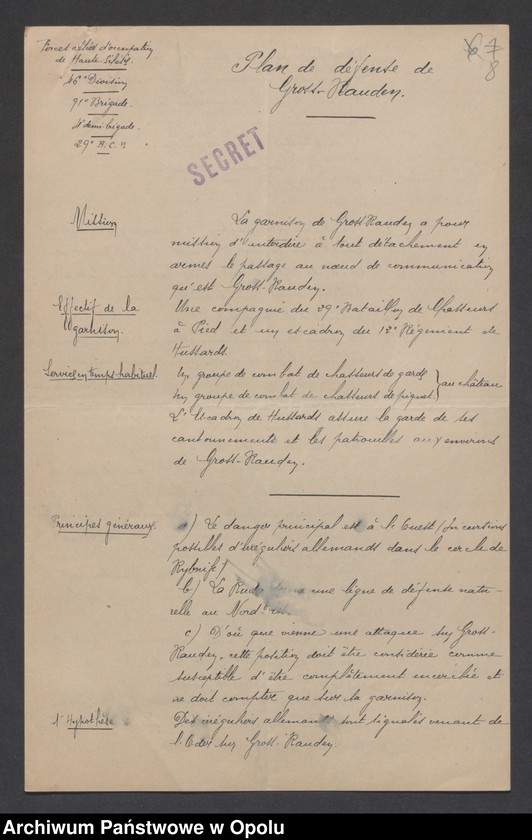 Forces alliés d'occupation
de Haute-Silésie
46e Division
91e Brigade.
4e demi-brigade.
29e B.C.P.
6 7
8
Plan de défense de
Gross-Rauden.
SECRET
Mission
La garnison de Gross Rauden a pour
mission d'interdire à tout détachement en
armes le passage au nœud de communication
qu'est Gross-Rauden.
Effectif de la
Garnison.
Une compagnie du 29e Bataillon de Chasseurs
à Pied et un escadron du 12e Régiment de
Hussards.
Service en temps habituel.
Un groupe de combat de chasseurs de garde
Un groupe de combat de chasseurs de piquet
} au château
L'Escadron de Hussards assure la garde de ses
cantonnements et les patrouilles aux environs
de Gross-Rauden.
Principes généraux.
a) Le danger principal est à l'Ouest (Incursions
possibles d'irréguliers allemands dans le cercle de
Rybnik)
b) La Ruda une ligne de défense natu-
relle au
c) D'où que vienne une attaque sur Gross-
Rauden, cette position doit être considérée comme
susceptible d'être complètement encerclée et
ne doit compter que sur la garnison.
1e Hypothèse
Des irréguliers allemands sont signalés venant de
l'Oder sur Gross-Rauden.
Archiwum Państwowe w Opolu